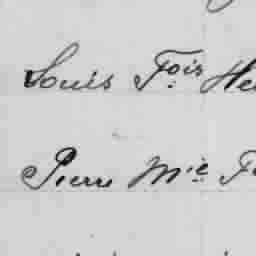 Louis Fois He
Pierre Mie F